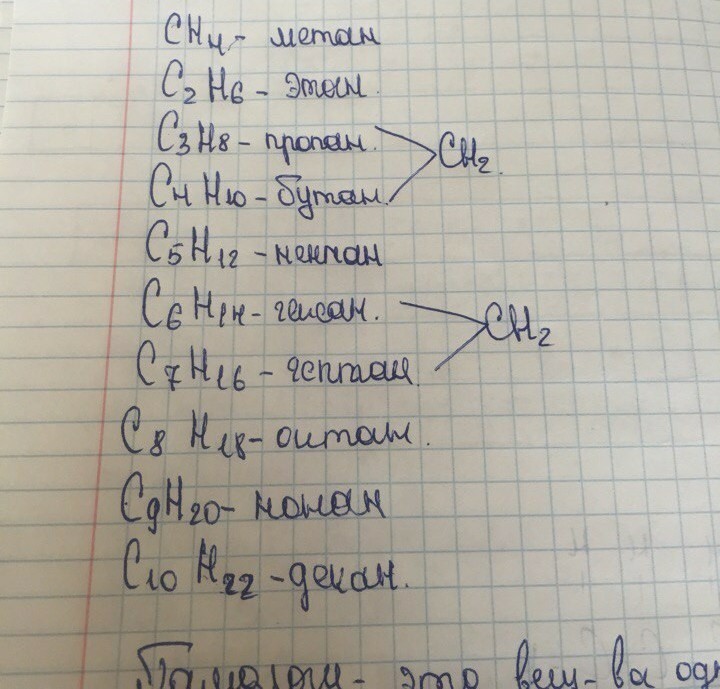 CH4 - метан
C2H6 - этан.
C3H8 - пропан.
CH2.
C4H10 - бутан.
C5H12 - пентан
C6H14 - гексан.
CH2
C7H16 - гептан
C8H18 - октан.
C9H20 - нонан
C10H22 - декан.
Гомологи - это вещ-ва одн